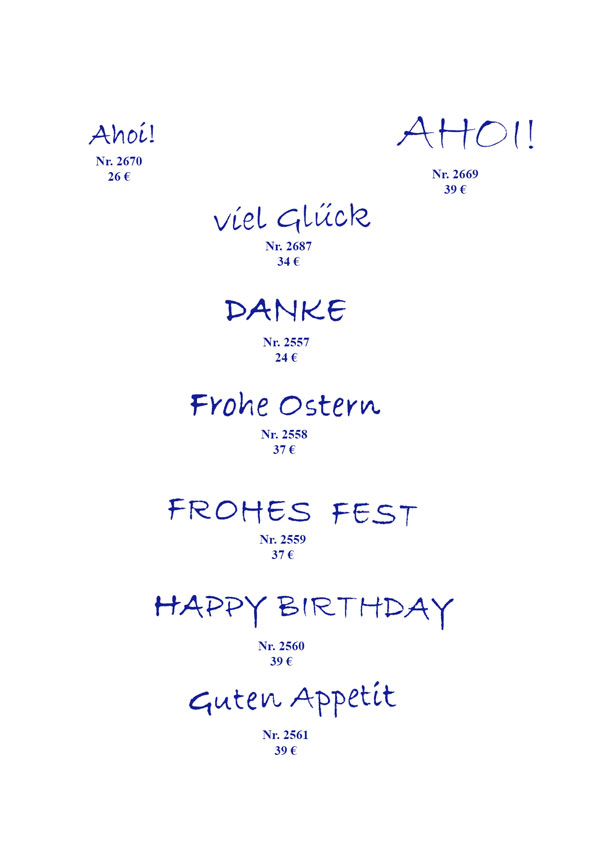 Ahoi!
Nr. 2670
26 €
AHOI!
Nr. 2669
39 €
viel Glück
Nr. 2687
34 €
DANKE
Nr. 2557
24 €
Frohe Ostern
Nr. 2558
37 €
FROHES FEST
Nr. 2559
37 €
HAPPY BIRTHDAY
Nr. 2560
39 €
Guten Appetit
Nr. 2561
39 €